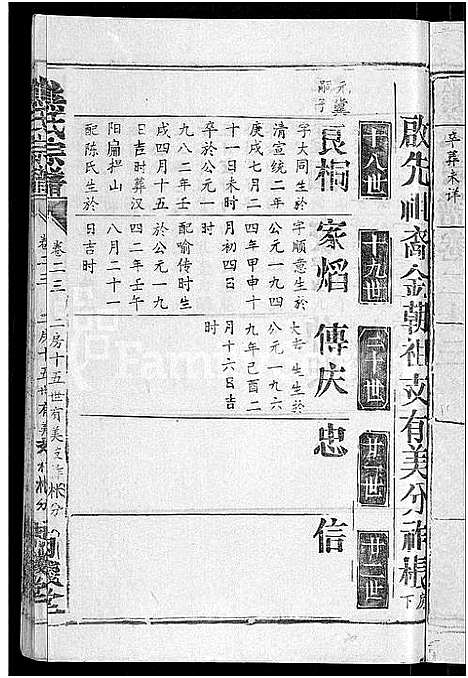 卒葬未详
啟先祖裔金朝祖支有美分祚根房下
十八世
十九世
二十世
廿一世
廿二世
元黨嗣子
良桐
字大同生於清宣统二年庚戌七月二十一日未时卒於公元一九八二年壬戌四月十五日吉时葬汉阳扁担山
配陈氏生於日吉时
家焰
字顺意生於公元一九四四年甲申十月初四日时
配喻传时生於公元一九四二年壬午八月二十一日吉时
傅庆
大生生於公元一九六九年己酉二月十六日吉时
忠
信
熊氏宗譜
卷二三
二房十五世有美支祚根分